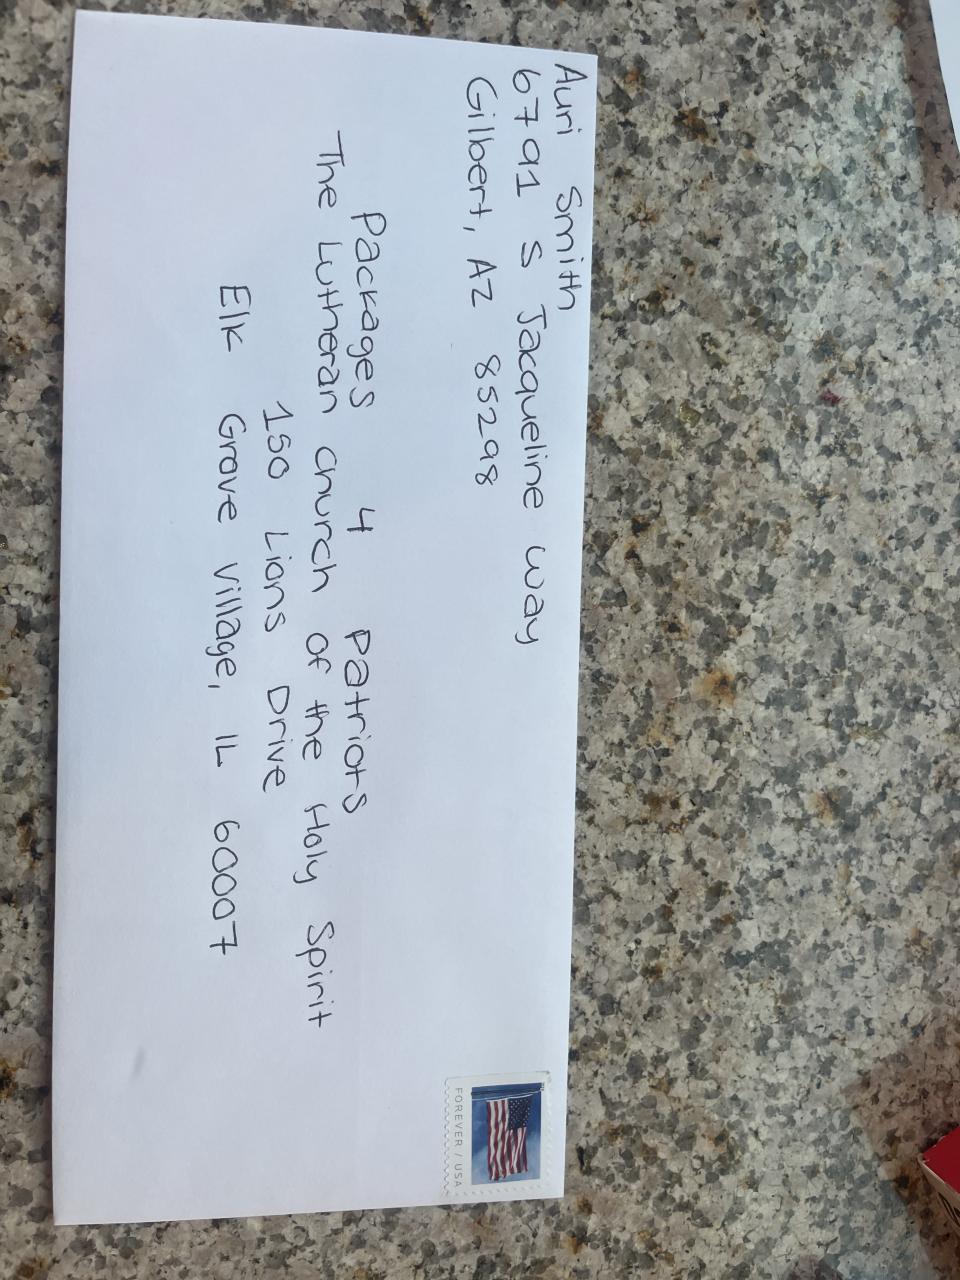 Auri Smith
6791 S Jacqueline Way
Gilbert, AZ 85298
Packages 4 Patriots
The Lutheran Church of the Holy Spirit
150 Lions Drive
Elk Grove Village, IL 60007
FOREVER / USA